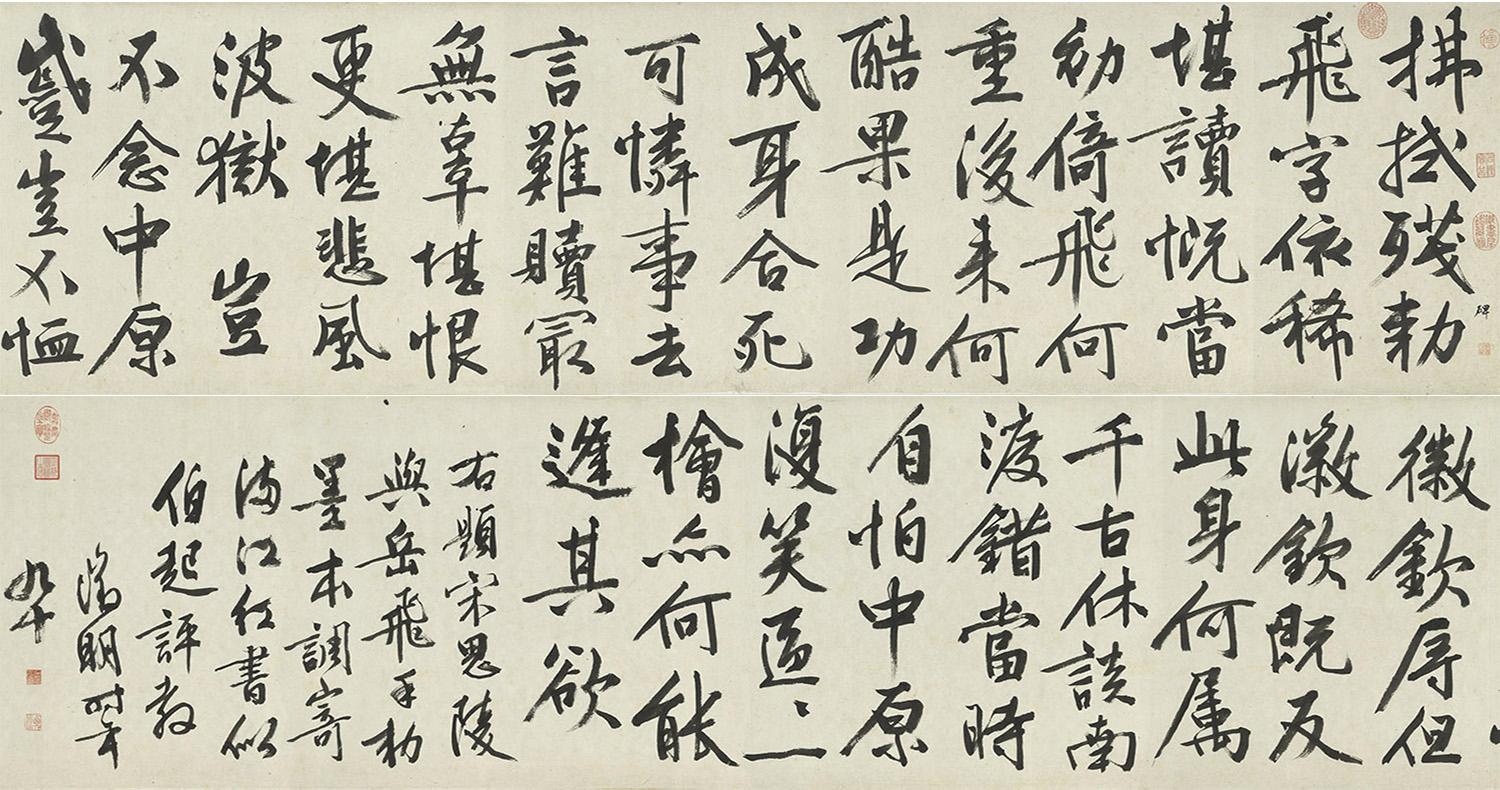 拂拭殘碑勑
飛字依稀
堪讀慨當
初倚飛何
重後来何
酷果是功
成身合死
可憐事去
言難贖冣
無辜堪恨
更堪悲風
波獄豈
不念中原
蹙豈不恤
徽欽辱但
徽欽既反
此身何属
千古休談南
渡錯當時
自怕中原
復笑區〻一
檜亦何能
逢其欲
右題宋思陵
與岳飛手勑
墨本調寄
滿江红書似
伯起評教
徵明時年
九十